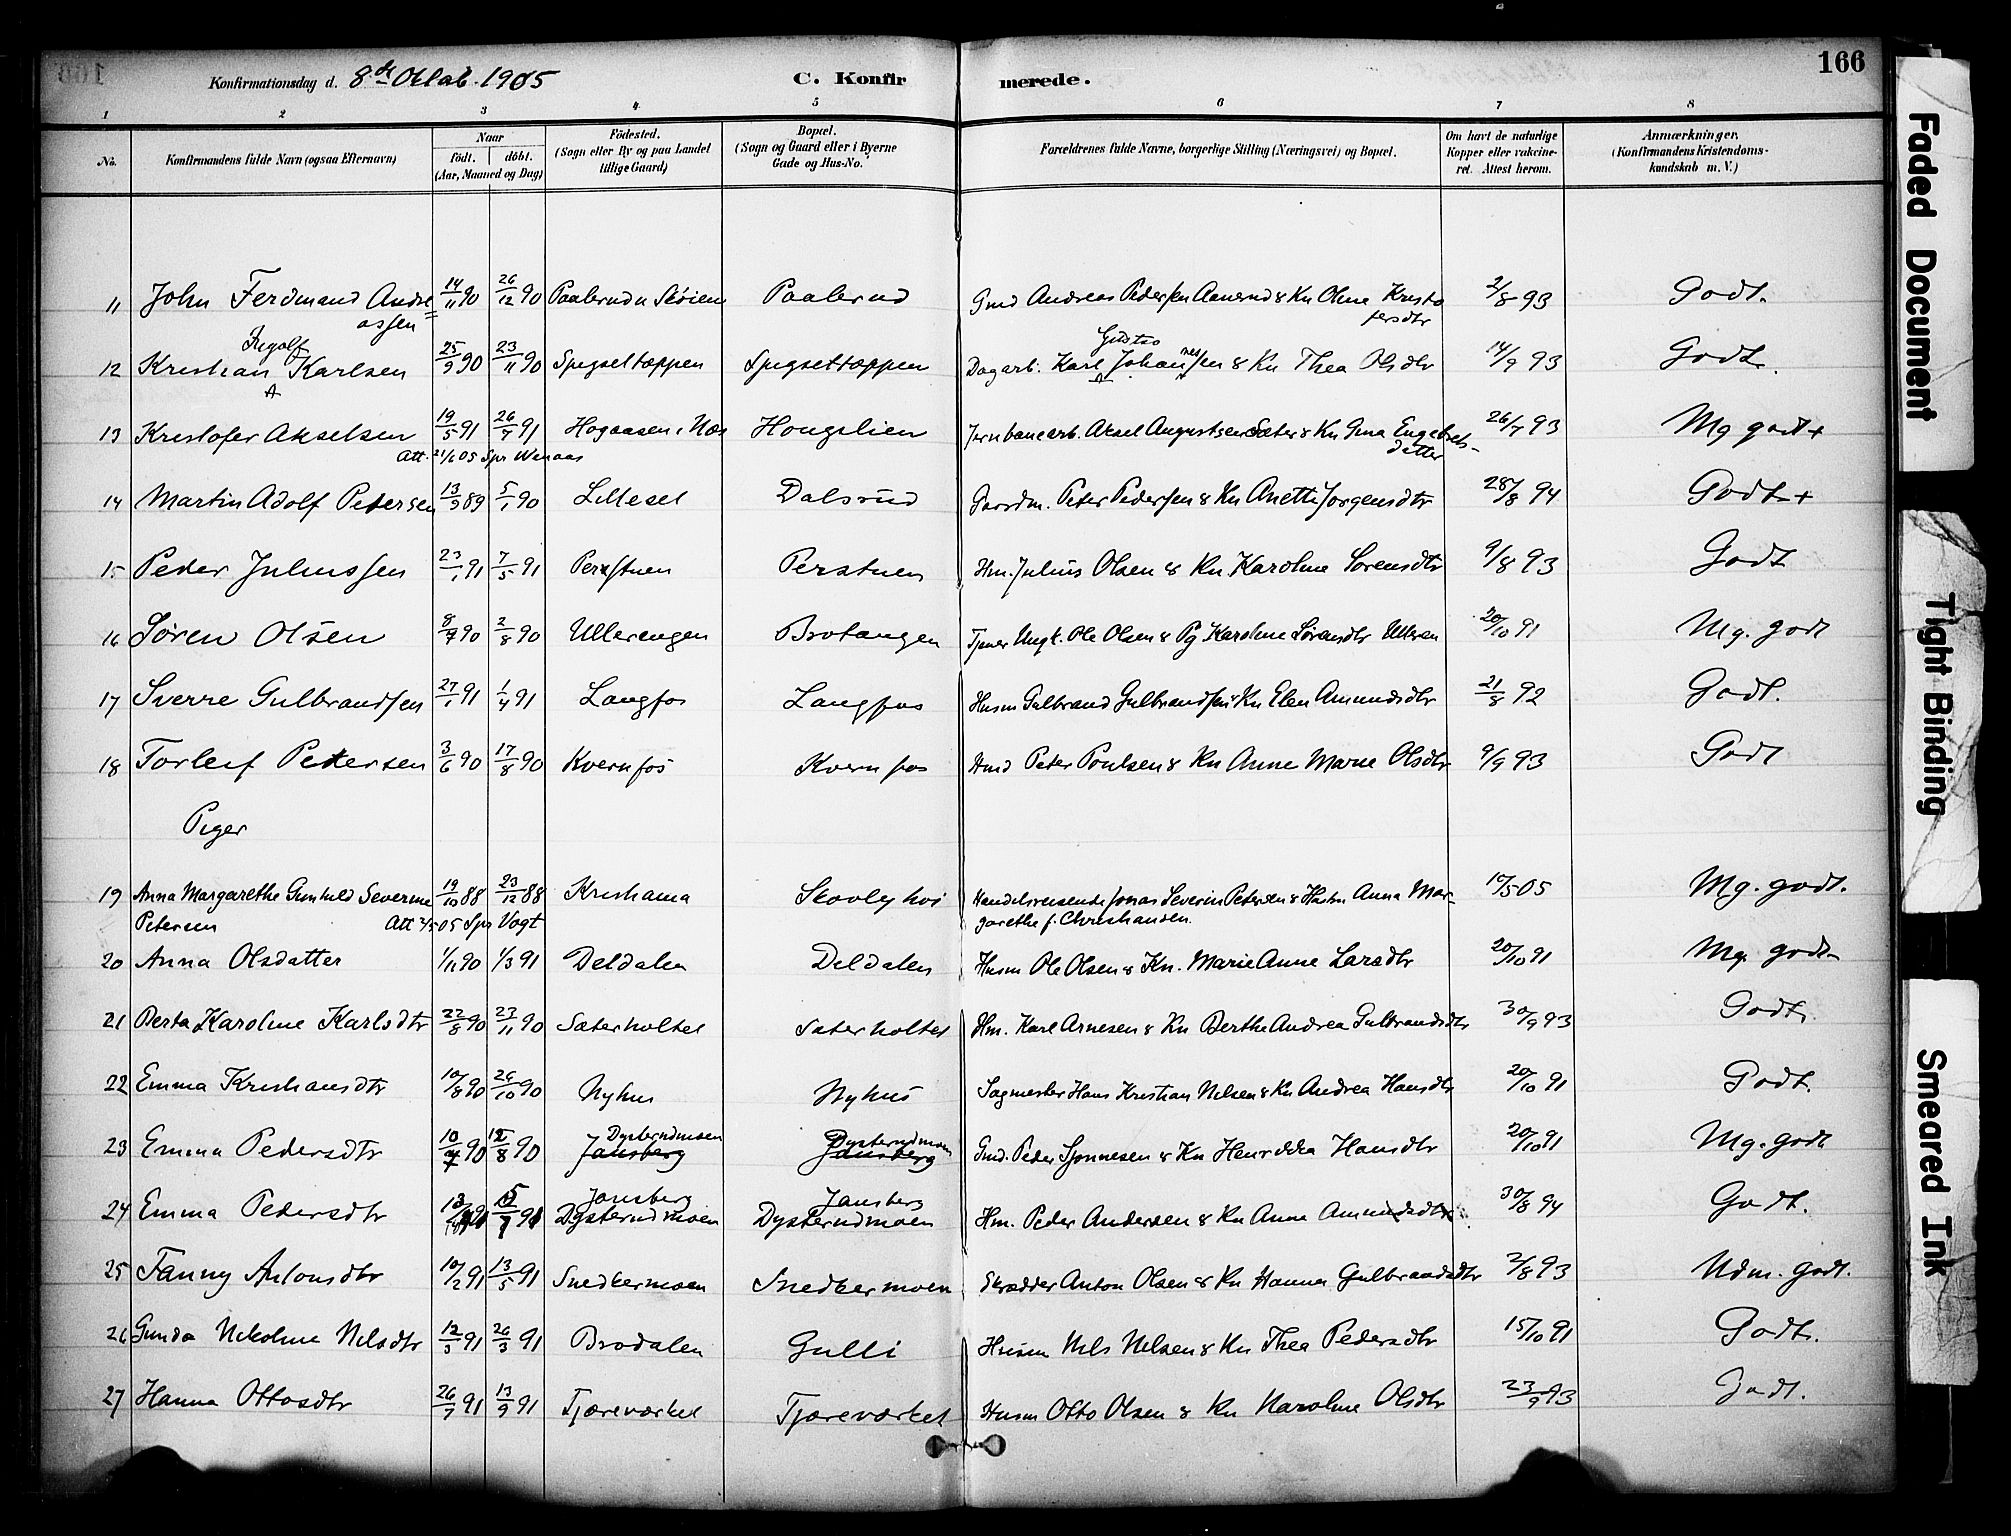 166
Konfirmationsdag d. 8de Oktob. 1905
C. Konfirmerede.
1 2 3 4 5 6 7 8
No. Konfirmandens fulde Navn (ogsaa Efternavn) Naar födt. döbt. (Aar, Maaned og Dag) Födested. (Sogn eller By og paa Landet tillige Gaard) Bopæl. (Sogn og Gaard eller i Byerne Gade og Hus-No.) Forældrenes fulde Navne, borgerlige Stilling (Næringsvei) og Bopæl. Om havt de naturlige Kopper eller vakcineret. Attest herom. Anmærkninger. (Konfirmandens Kristendomskundskab m. V.)
11 John Ferdinand Andreassen 14/11 90 26/12 90 Paalerud Paalerud Gmd Andreas Pedersen Aanerud & Kn Oline Kristofersdtr 2/8 93 Godt.
12 Kristian Ingolf Karlsen 25/9 90 23/11 90 Spigsettoppen Spigsettoppen Dagarb. Karl Gustav Johannessen & Kn Thea Olsdtr 14/9 93 Godt.
13 Kristofer Akselsen 19/5 91 26/7 91 Hogaasen i Næs Hougslien Jernbanearb. Aksel Augustsen Sæter & Kn Gina Engebretsdatter 26/7 93 Mg godt +
Att. 21/6 05 Spr Wenaas
14 Martin Adolf Petersen 13/9 89 5/1 90 Lillesel Dalsrud Gaardm. Peter Pedersen & Kn Anette Jorgensdtr 28/8 94 Godt +
15 Peder Juliussen 23/1 91 7/5 91 Perstuen Perstuen Hm. Julius Olsen & Kn Karoline Sorensdtr 9/8 93 Godt
16 Søren Olsen 8/7 90 2/8 90 Ullerengen Brotangen Tjener Ungk. Ole Olsen & Pg Karoline Sørensdtr Ulleren 20/10 91 Mg. godt
17 Sverre Gulbrandsen 27/1 91 1/4 91 Langfos Langfos Husm Gulbrand Gulbrandsen & Kn Elen Amundsdtr 21/8 92 Godt.
18 Torleif Petersen 3/6 90 17/8 90 Kvernfos Kvernfos Hmd Peter Poulsen & Kn Anne Marie Olsdtr 9/9 93 Godt
Piger
19 Anna Margarethe Gunhild Severine Petersen 19/10 88 23/12 88 Kristiania Skovly hvi Handelsreisende Jonas Severin Petersen & Hustru Anna Margarethe f. Christiansen. 10/5 05 Mg. godt.
Att 2/5 05 Spr Vogt
20 Anna Olsdatter 1/11 90 1/3 91 Deldalen Deldalen Husm Ole Olsen & Kn. Marie Anne Larsdtr 20/10 91 Mg. godt
21 Berta Karoline Karlsdtr 22/8 90 23/11 90 Sæterholtet Sæterholtet Hm. Karl Arnesen & Kn Berthe Andrea Gulbrandsdtr 30/9 93 Godt.
22 Emma Kristiansdtr 10/8 90 26/10 90 Nyhus Nyhus Sagmester Hans Kristian Nilsen & Kn Andrea Hansdtr 20/10 91 Godt.
23 Emma Pedersdtr 10/7 90 12/8 90 Jansberg Dysterudmoen Jansberg Dysterudmoen Gmd. Peder Synnesen & Kn Henrikka Hansdtr 20/10 91 Mg. godt
24 Emma Pedersdtr Jansberg Dysterudmoen Jansberg Dysterudmoen Hm. Peder Andersen & Kn Anne Amundsdtr 30/8 94 Godt.
25 Fanny Antonsdtr 10/2 91 13/5 91 Snedkermoen Snedkermoen Skrædder Anton Olsen & Kn Hanna Gulbrandsdtr 2/8 93 Udm. godt.
26 Gunda Nikoline Nilsdtr 12/3 91 26/3 91 Brodalen Gulli Husm Nils Nilsen & Kn Thea Pedersdtr 15/10 91 Godt.
27 Hanna Ottosdtr 26/7 91 13/9 91 Tjæreværket Tjæreværket Husm Otto Olsen & Kn Karoline Olsdtr 23/9 93 Godt.
Faded Document
Tight Binding
Smeared Ink